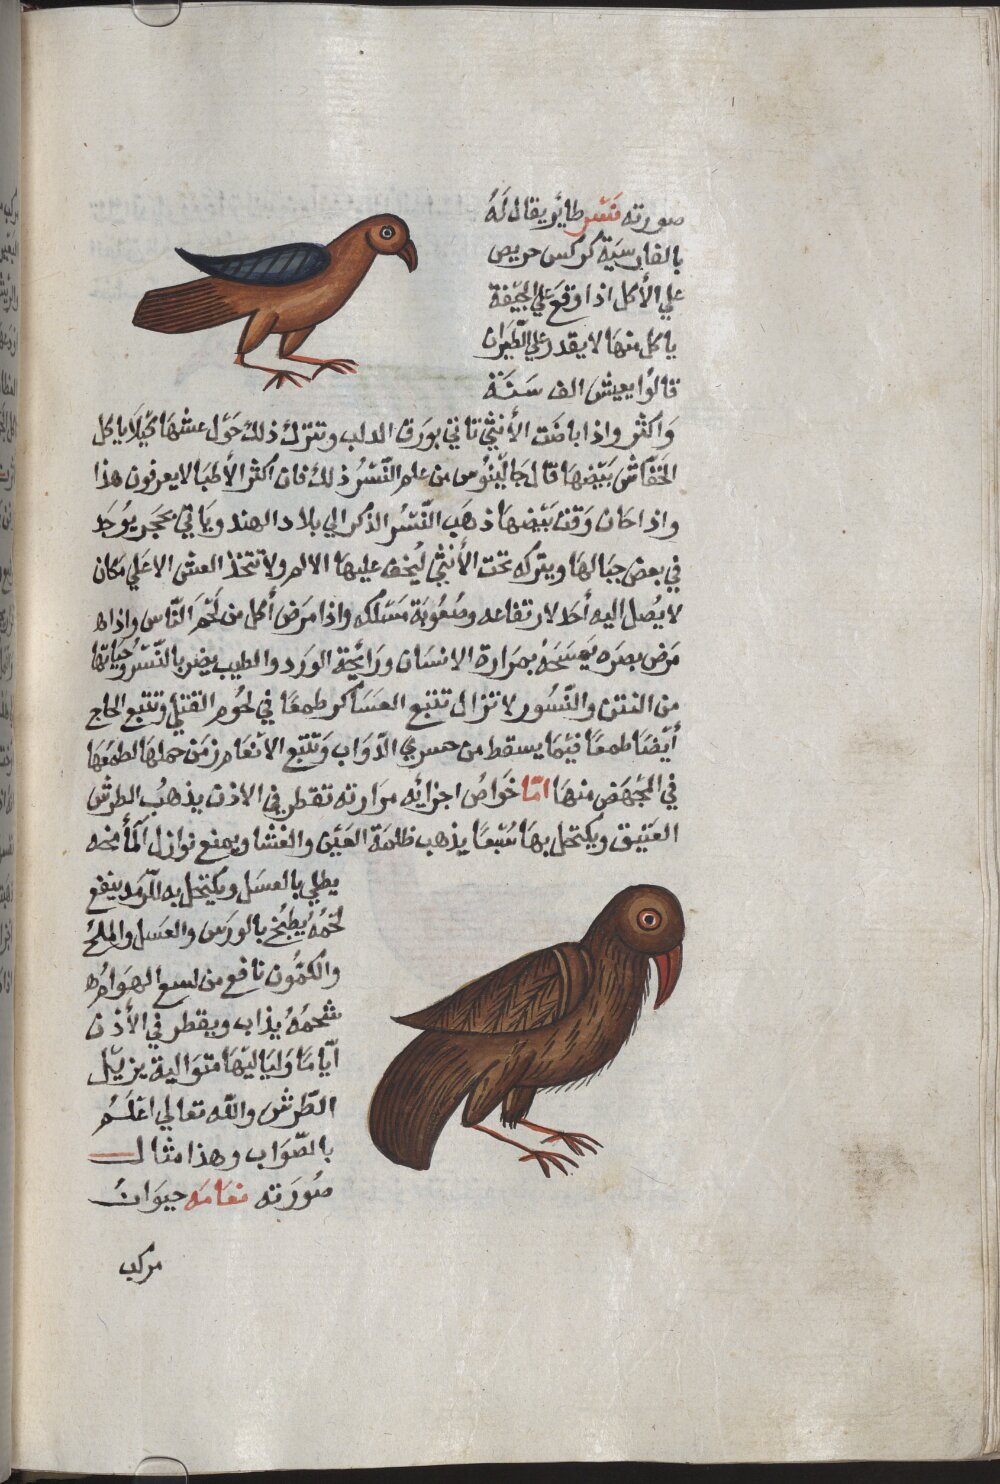 صورته نسر طاير يقال لَهُ
بالفارسية كركس حريص
علي الأكل اذا وقع علي الجيفة
ياكل منها لا يقدر علي الطَيَران
قالوا يعيش الف سَنَة
وَاكثر واذا باضَت الأنثي تاتي بورق الدلب وتترك ذلك حَول عشهَا كَيْلَا ياكل
الخفّاش بَيْضهَا قال جَالينُوس من علم النّسْرُ ذلك فان اكثر الأطبا لا يعرفون هذا
واذا حَان وَقت بَيْضهَا ذهَب النّسْر الذكر الي بلاد الهند ويَاتي بحجر يوُجَد
في بعض جبَالهَا ويتركه تحت الأنثي ليُخف عليهَا الالم ولا تتخذ العش الا علي مكان
لا يُصل اليه أحَد لارتفاعه وصُعُوبَة مَسْلكه واذا مرَض أكل من لَحْم النّاس واذا
مَرَض بصرَه يمسَحَهُ بمرَارة الانسَان ورَائحة الورَد والطيب يضر بالنّسْر وحَيَاتها
من النتن والنّسُور لا تزال تتبع العسَاكر طمعًا في لحُوم القتلي وتتبع الحاج
أيضَا طمعًا فيْمَا يسقط من حسري الدّوَاب وَتتبع الانعَام زمَن حملهَا لطمَعهَا
في المجْهَض منهَا امّا خَوَاصُ اجزائه مرَارته تقطر في الاذن يذهبُ الطرَش
العَتيق ويكتحل بهَا سَبْعًا يذهب ظلمَة العَيْن والغشا ويمنع نوازل المآء مخه
يطلي بالعسَل ويكتحل به للرّمَد ينفع
لحَمُهُ يُطبخ بالورَس والعَسَل والملح
والكمّون نافع من لسع الهوَامّ
شحمُهُ يذاب ويقطر في الأذن
أيّامَا وَليَاليْهَا متوَالية يزيْل
الطّرش والله تعالي اعْلَمْ
بالصّوَاب وهذا مثال
صُورَته نعَامَه حيوَانُ
مركب